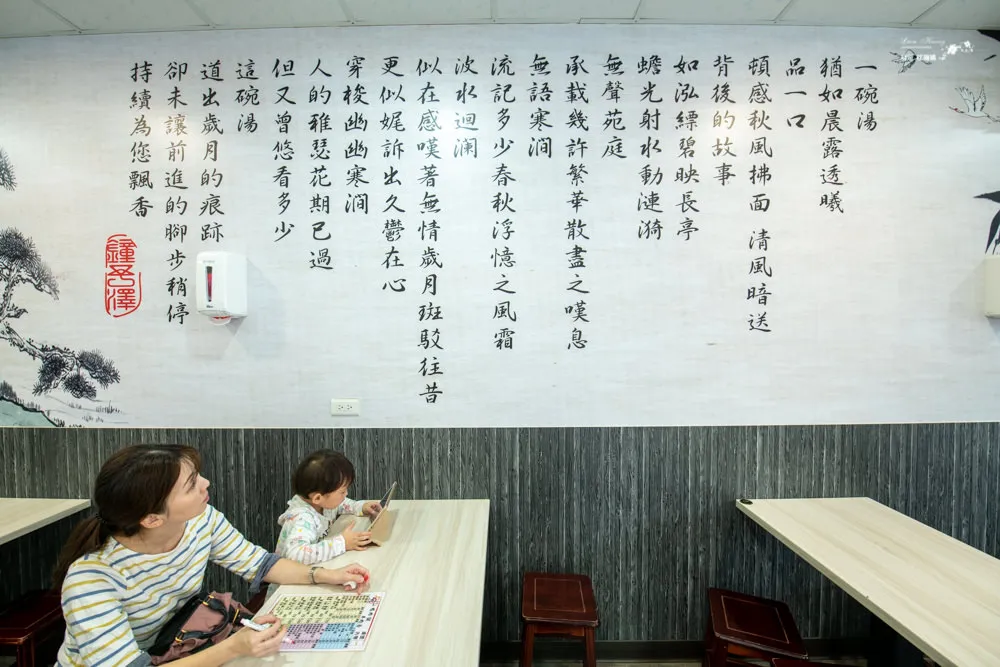 一碗湯
猶如晨露透曦
品一口
頓感秋風拂面 清風暗送
背後的故事
如泓縹碧映長亭
蟾光射水動漣漪
無聲苑庭
承載幾許繁華散盡之嘆息
無語寒澗
流記多少春秋浮憶之風霜
波水迴瀾
似在感嘆著無情歲月斑駁往昔
更似娓訴出久鬱在心
穿梭幽幽寒澗
人的稚瑟花期已過
但又曾悠看多少
這碗湯
道出歲月的痕跡
卻未讓前進的腳步稍停
持續為您飄香